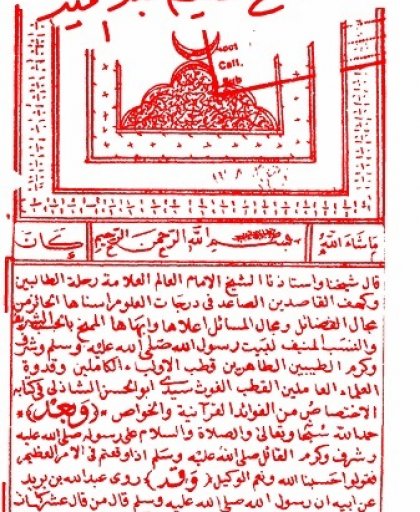 Root
Call.
ما شاء الله
بسم الله الرحمن الرحيم
كان
قال شيخنا واستاذنا الشيخ الامام العالم العلامة رحلة الطالبين
وكهف القاصدين الصاعد فى درجات العلوم اسناها الحائز من
مجال الفضائل ومجال المسائل اعلاها وابهاها الممنح بالحسب الشريف
والنسب المنيف لبيت رسول الله صلى الله عليه وسلم وشرف
وكرم الطيبين الطاهرين قطب الاولياء الكاملين وقدوة
العلماء العاملين القطب الغوث سيدى ابو الحسن الشاذلى فى كتابه
الاختصاص من الفوائد القرآنية والخواص *(وبعد)*
حمد الله سبحانه وتعالى والصلاة والسلام على رسوله صلى الله عليه
وشرف وكرم القائل صلى الله عليه وسلم اذا وقعتم فى الامر العظيم
فقولوا حسبنا الله ونعم الوكيل (وقد) روى عبد الله بن بريد
عن ابيه ان رسول الله صلى الله عليه وسلم قال من قال عشر كلمات